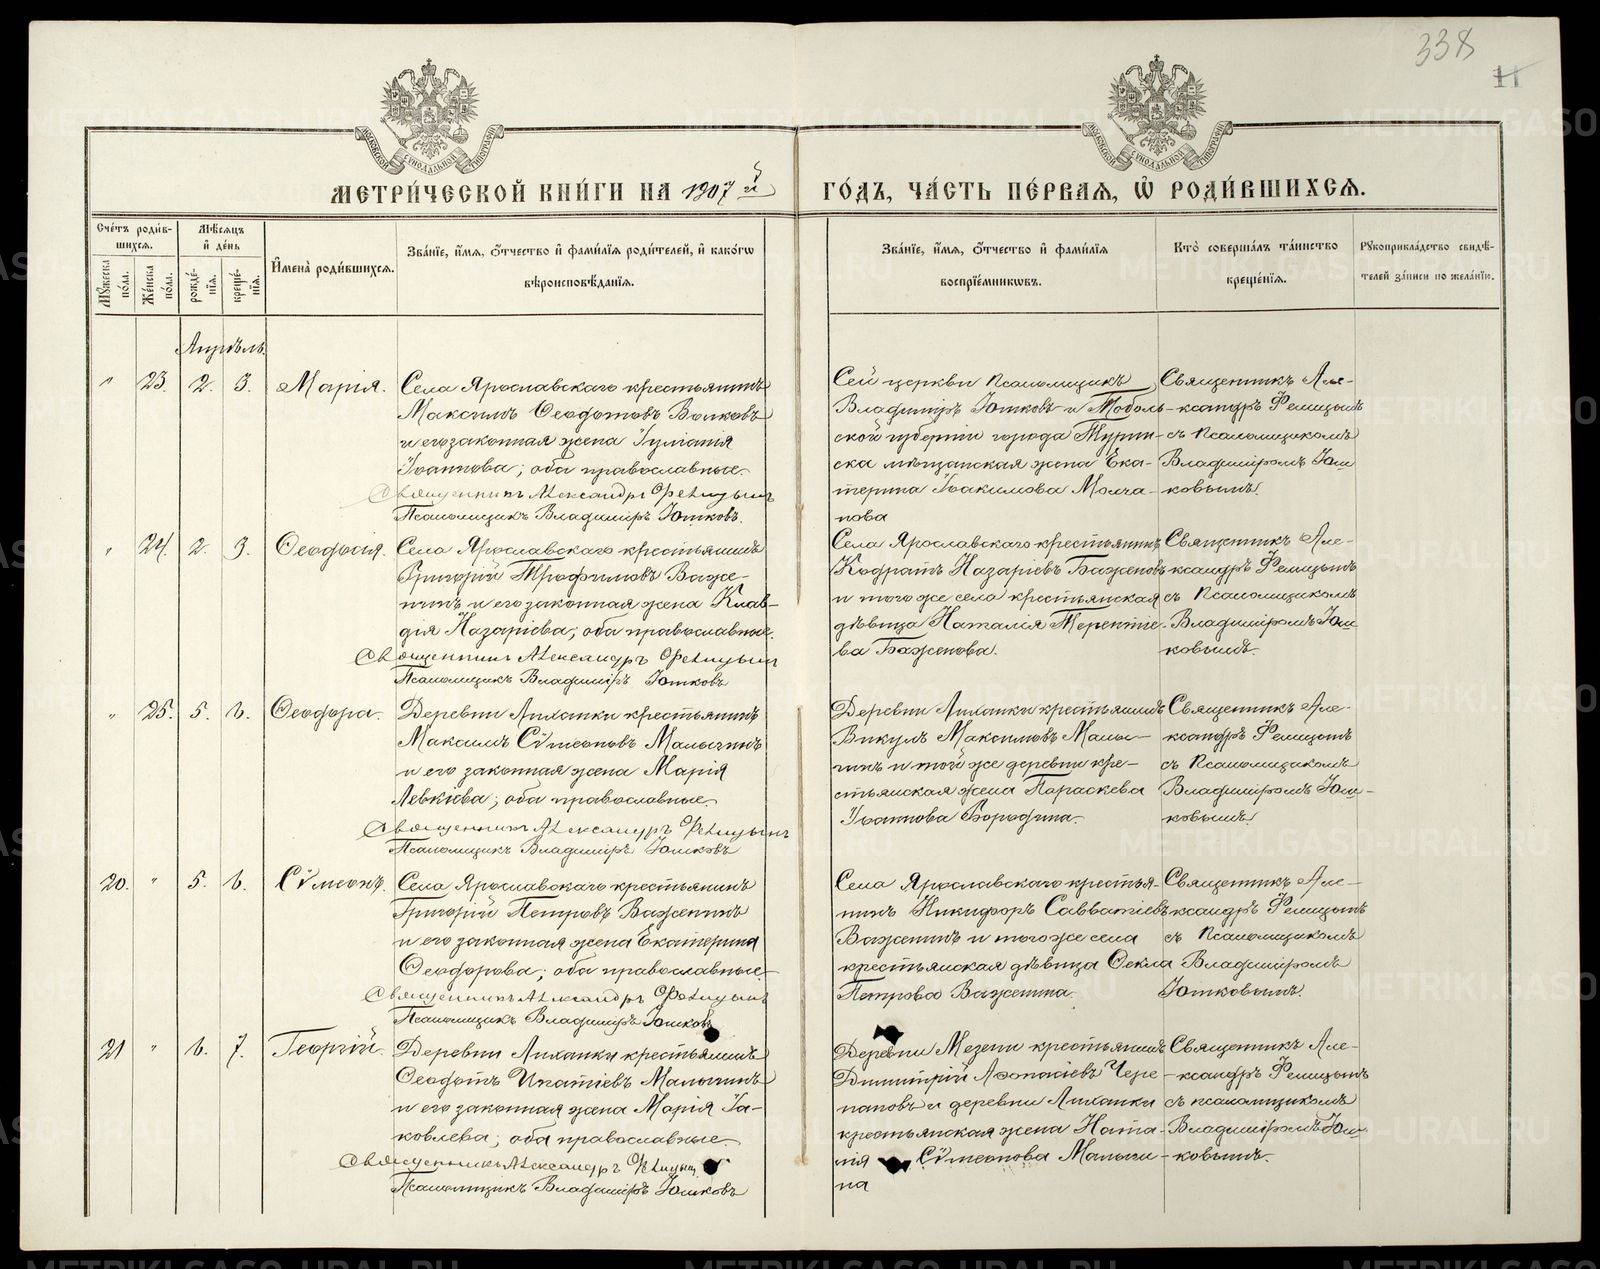 338
11
МЕТРИ́ЧЕСКОЙ КНИ́ГИ НА 1907 й ГО́ДЪ, ЧА́СТЬ ПЕ́РВАЯ, Ѡ҆ РОДИ́ВШИХСЯ.
Сче́тъ роди́в-
шихся.
Мѣ́сяцъ
и҆ де́нь
Мꙋ́жеска по́ла.
Же́нска по́ла.
рожде́-
нїѧ.
креще́-
нїѧ.
И҆мена̀ роди́вшихсѧ.
Зва́нїе, и҆́мѧ, ѻ҆́тчество и҆ фами́лїѧ роди́телей, и҆ како́гѡ
вѣроисповѣ́данїѧ.
Зва́нїе, и҆́мѧ, ѻ҆́тчество и҆ фами́лїѧ
воспрїе́мникѡвъ.
Кто̀ соверша́лъ та́инство
креще́нїѧ.
Рꙋкоприкла́дство свидѣ́-
телей за́писи по жела́нїю.
Апрѣль.
" 23. 2. 3. Марія.
Села Ярославскаго крестьянинъ
Максимъ Ѳеодотовъ Волковъ
и его законная жена Іуліанія
Іоаннова; оба православные.
Священникъ Александръ Фелицынъ
Псаломщикъ Владиміръ Юшковъ.
Сей церкви псаломщикъ
Владиміръ Юшковъ и Тоболь-
ской губерніи города Турин-
ска мѣщанская жена Ека-
терина Іоакимова Молча-
нова
Священникъ Але-
ксандръ Фелицынъ
съ псаломщикомъ
Владиміромъ Юш
ковымъ.
" 24. 2. 3. Ѳеодосія.
Села Ярославскаго крестьянинъ
Григорій Трофимовъ Важе-
нинъ и его законная жена Клав-
дія Назаріева; оба православные.
Священникъ Александръ Фелицынъ
Псаломщикъ Владиміръ Юшковъ
Села Ярославскаго крестьянинъ
Кодратъ Назаріевъ Баженовъ
и того же села крестьянская
дѣвица Наталія Терентіе-
ва Баженова.
Священникъ Але-
ксандръ Фелицынъ
съ псаломщикомъ
Владиміромъ Юш
ковымъ.
" 25. 5. 6. Ѳеодора.
Деревни Лиханки крестьянинъ
Максимъ Сѵмеоновъ Малыгинъ
и его законная жена Марія
Левкіева; оба православные.
Священникъ Александръ Фелицынъ
Псаломщикъ Владиміръ Юшковъ
Деревни Лиханки крестьянинъ
Викулъ Максимовъ Малы-
гинъ и той же деревни кре-
стьянская жена Параскева
Іоаннова Бородина.
Священникъ Але-
ксандръ Фелицынъ
съ псаломщикомъ
Владиміромъ Юш-
ковымъ.
20. " 5. 6. Сѵмеонъ.
Села Ярославскаго крестьянинъ
Григорій Петровъ Важенинъ
и его законная жена Екатерина
Ѳеодорова; оба православные.
Священникъ Александръ Фелицынъ
Псаломщикъ Владиміръ Юшковъ
Села Ярославскаго крестья-
нинъ Никифоръ Савватіевъ
Важенинъ и того же села
крестьянская дѣвица Ѳекла
Петрова Важенина.
Священникъ Але-
ксандръ Фелицынъ
съ псаломщикомъ
Владиміромъ
Юшковымъ.
21 " 6. 7. Георгій.
Деревни Лиханки крестьянинъ
Ѳеодотъ Игнатіевъ Малыгинъ
и его законная жена Марія Іа-
ковлева; оба православные.
Священникъ Александръ Фелицын
Псаломщикъ Владиміръ Юшковъ
Деревни Мезени крестьянинъ
Димитрій Аѳонасіевъ Чере-
пановъ и деревни Лиханки
крестьянская жена Ната-
лія Сѵмеонова Малыги-
на
Священникъ Але-
ксандръ Фелицынъ
съ псаломщикомъ
Владиміромъ Юш
ковымъ.